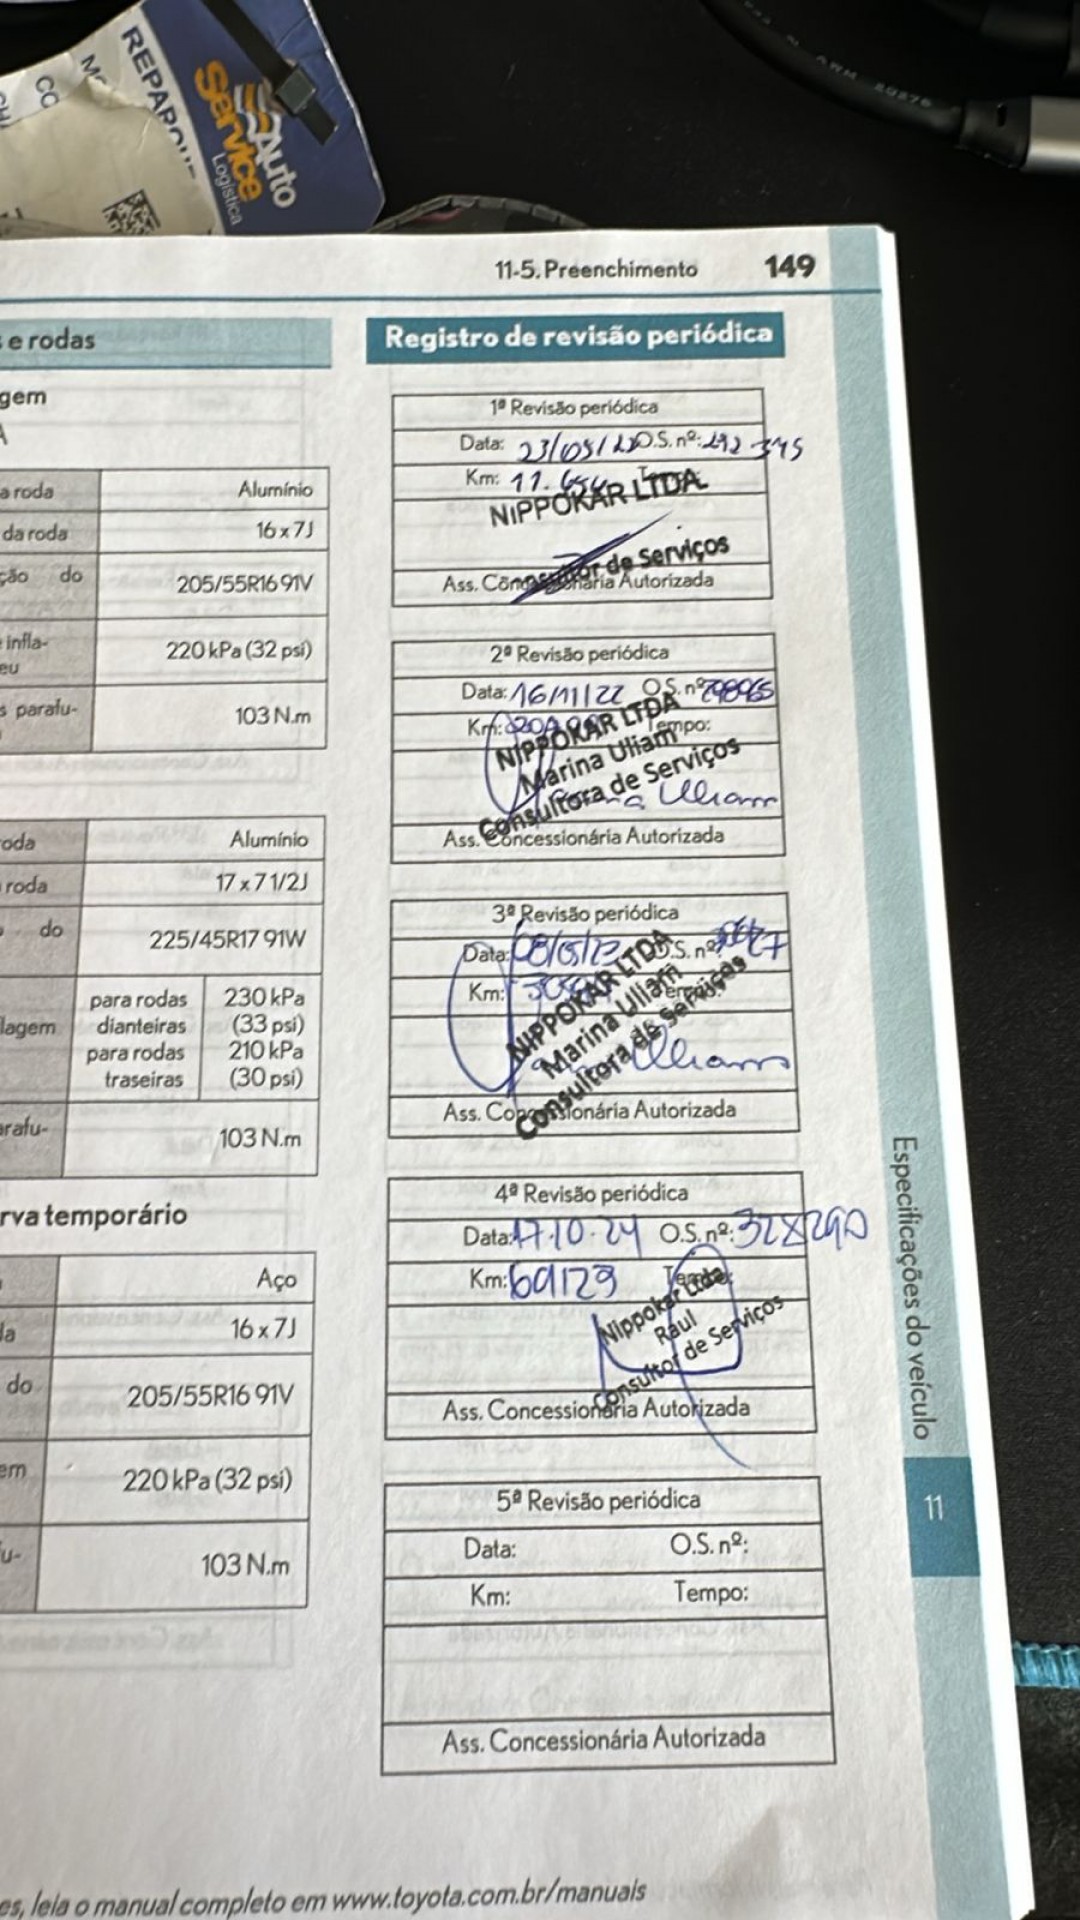 REPARQUE
Auto
Service
Logística
11-5. Preenchimento 149
s e rodas
gem
a roda Alumínio
da roda 16 x 7J
ção do 205/55R16 91V
infla-
eu 220 kPa (32 psi)
s parafu- 103 N.m
roda Alumínio
roda 17 x 7 1/2J
do 225/45R17 91W
lagem para rodas dianteiras 230 kPa (33 psi)
para rodas traseiras 210 kPa (30 psi)
arafu- 103 N.m
rva temporário
Aço
da 16 x 7J
do 205/55R16 91V
em 220 kPa (32 psi)
u- 103 N.m
Registro de revisão periódica
1ª Revisão periódica
Data: 23/05/22 O.S. nº: 292 345
Km: 11.
NIPPOKAR LTDA
Consultor de Serviços
Ass. Concessionária Autorizada
2ª Revisão periódica
Data: 16/11/22 O.S. nº 298965
Km: Tempo:
NIPPOKAR LTDA
Marina Uliam
Consultora de Serviços
Ass. Concessionária Autorizada
3ª Revisão periódica
Data: O.S. nº
Km: Tempo:
NIPPOKAR LTDA
Marina Uliam
Consultora de Serviços
Ass. Concessionária Autorizada
4ª Revisão periódica
Data: 17.10.24 O.S. nº: 328290
Km: 69129 Tempo:
Nippokar Ltda
Raul
Consultor de Serviços
Ass. Concessionária Autorizada
5ª Revisão periódica
Data: O.S. nº:
Km: Tempo:
Ass. Concessionária Autorizada
Especificações do veículo
11
es, leia o manual completo em www.toyota.com.br/manuais